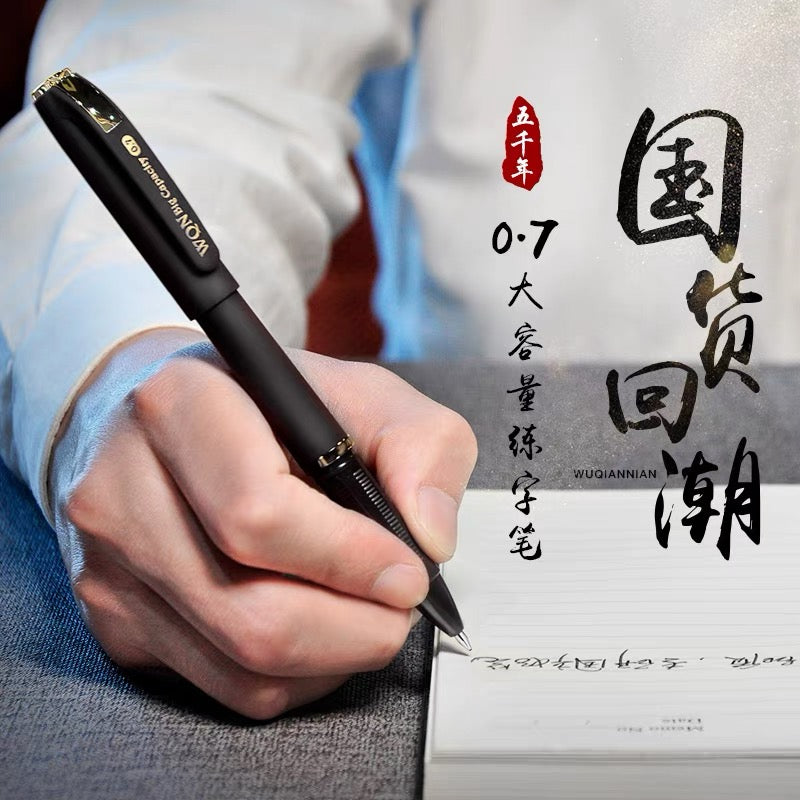 国货回潮
WUQIANNIAN
五千年
0.7大容量练字笔
WQN Big Capacity 0.7
Memo No
Date